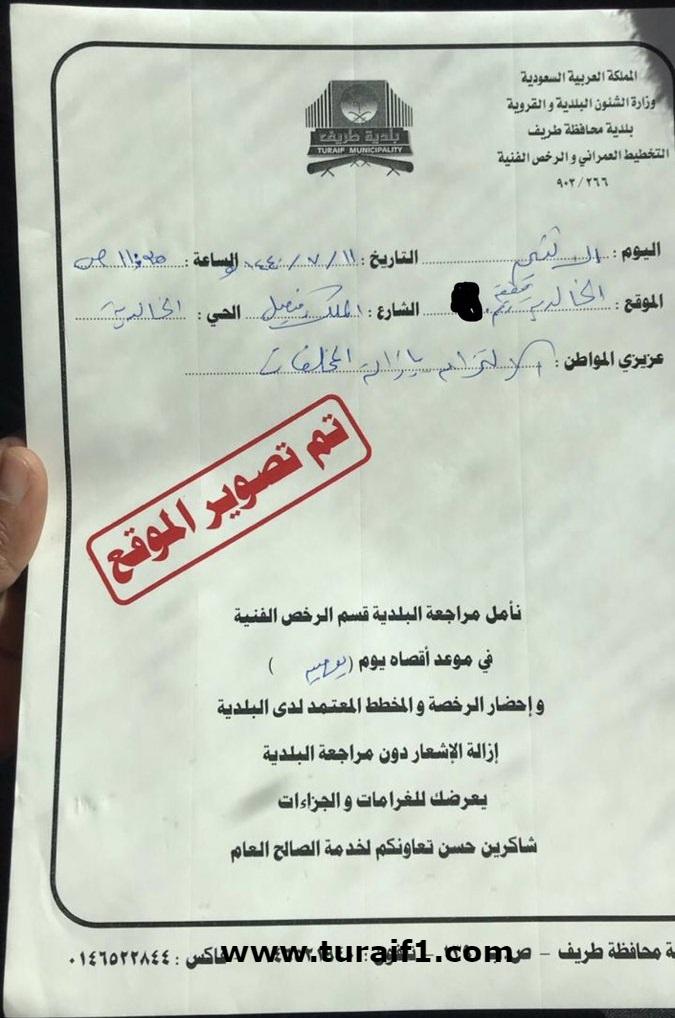 المملكة العربية السعودية
وزارة الشئون البلدية و القروية
بلدية محافظة طريف
التخطيط العمراني و الرخص الفنية
٩٠٣/٢٦٦
بلدية طريف
TURAIF MUNICIPALITY
اليوم : الاثنين التاريخ : ١١ / ٧ / ١٤٤٠ الساعة : ص
الموقع : الخالدية الشارع : الملك فيصل الحي : الخالدية
عزيزي المواطن : الالتزام بإزالة المخلفات
تم تصوير الموقع
نأمل مراجعة البلدية قسم الرخص الفنية
في موعد أقصاه يوم ( يومين )
و إحضار الرخصة و المخطط المعتمد لدى البلدية
إزالة الإشعار دون مراجعة البلدية
يعرضك للغرامات و الجزاءات
شاكرين حسن تعاونكم لخدمة الصالح العام
محافظة طريف – فاكس : ٠١٤٦٥٢٢٨٤٤
www.turaif1.com